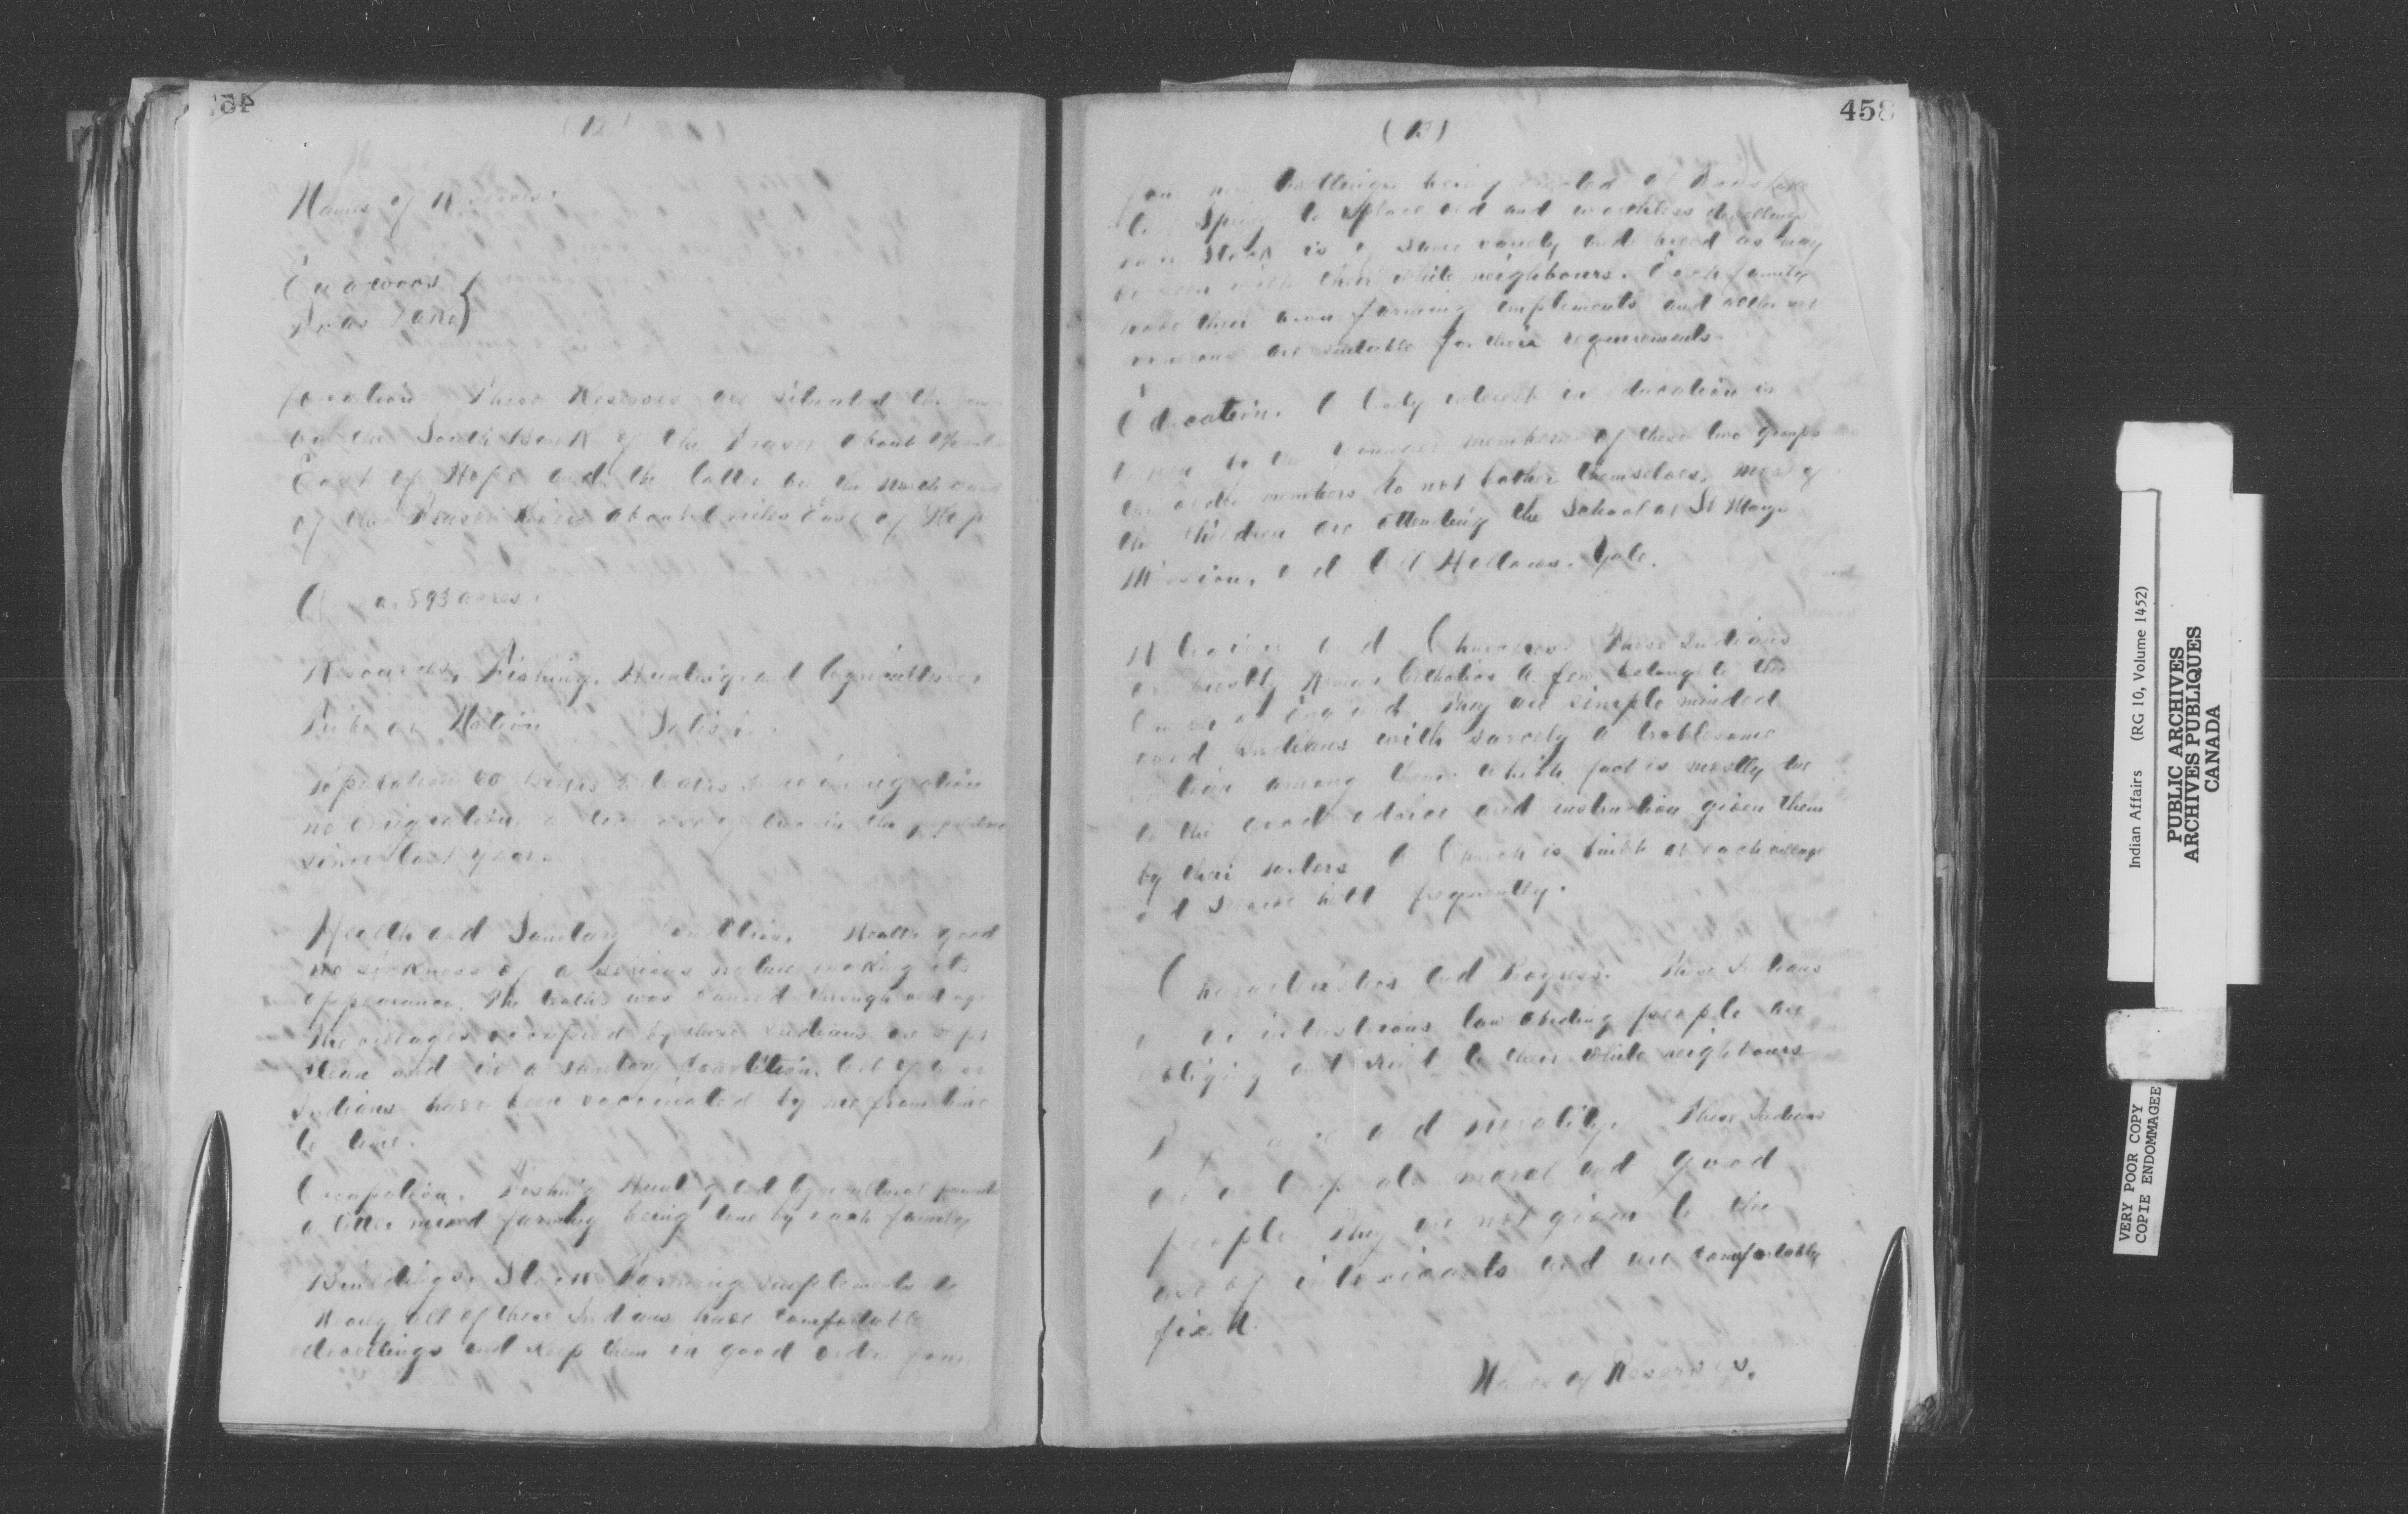 (12)
Names of Reserves.
Ewawoos
Texas Lake
Location These Reserves are situated the
on the South Bank of the Fraser about
East of Hope and the latter on the North
of the Fraser River about miles East of Hope
Area. 893 acres.
Resources, Fishing, Hunting and Agriculture
Tribe or Nation Salish
Population births deaths no immigration
no emigration a decrease of two in the
since last year.
Health and Sanitary Condition. Health good
no sickness of a serious nature making its
appearance. The deaths was caused through old age
The villages occupied by these Indians are kept
clean and in a sanitary condition. all of these
Indians have been vaccinated by me from time
to time.
Occupation. Fishing Hunting and Agricultural pursuits
a little mixed farming being done by each family
Buildings. Stock Farming implements
Nearly all of these Indians have comfortable
dwellings and keep them in good order four
458
(13)
four new dwellings being erected at Texas Lake
last Spring to replace old and worthless dwellings
Stock is of same variety and breed as may
be seen with their white neighbours. Each family
have their own farming implements and
are suitable for their requirements.
Education. A lively interest in education is
by the younger members of these two groups
the older members do not bother themselves, most of
the children are attending the School at St Marys
Mission, and All Hallows. Yale.
Religion and Churches. These Indians
are mostly Roman Catholics A few belong to the
Church of England. They are simple minded
good Indians with sarcely a troublesome
Indian among them. Which fact is mostly due
to the good advice and instruction given them
by their A Church is built at each village
and Service held frequently.
Characteristics and Progress. These Indians
are industrious law abiding people are
obliging and kind to their white neighbours
Temperance and morality. These Indians
are temperate moral and good
people They are not given to the
use of intoxicants and are comfortably
fixed.
Names of Reserves.
Indian Affairs (RG 10, Volume 1452)
PUBLIC ARCHIVES
ARCHIVES PUBLIQUES
CANADA
VERY POOR COPY
COPIE ENDOMMAGEE